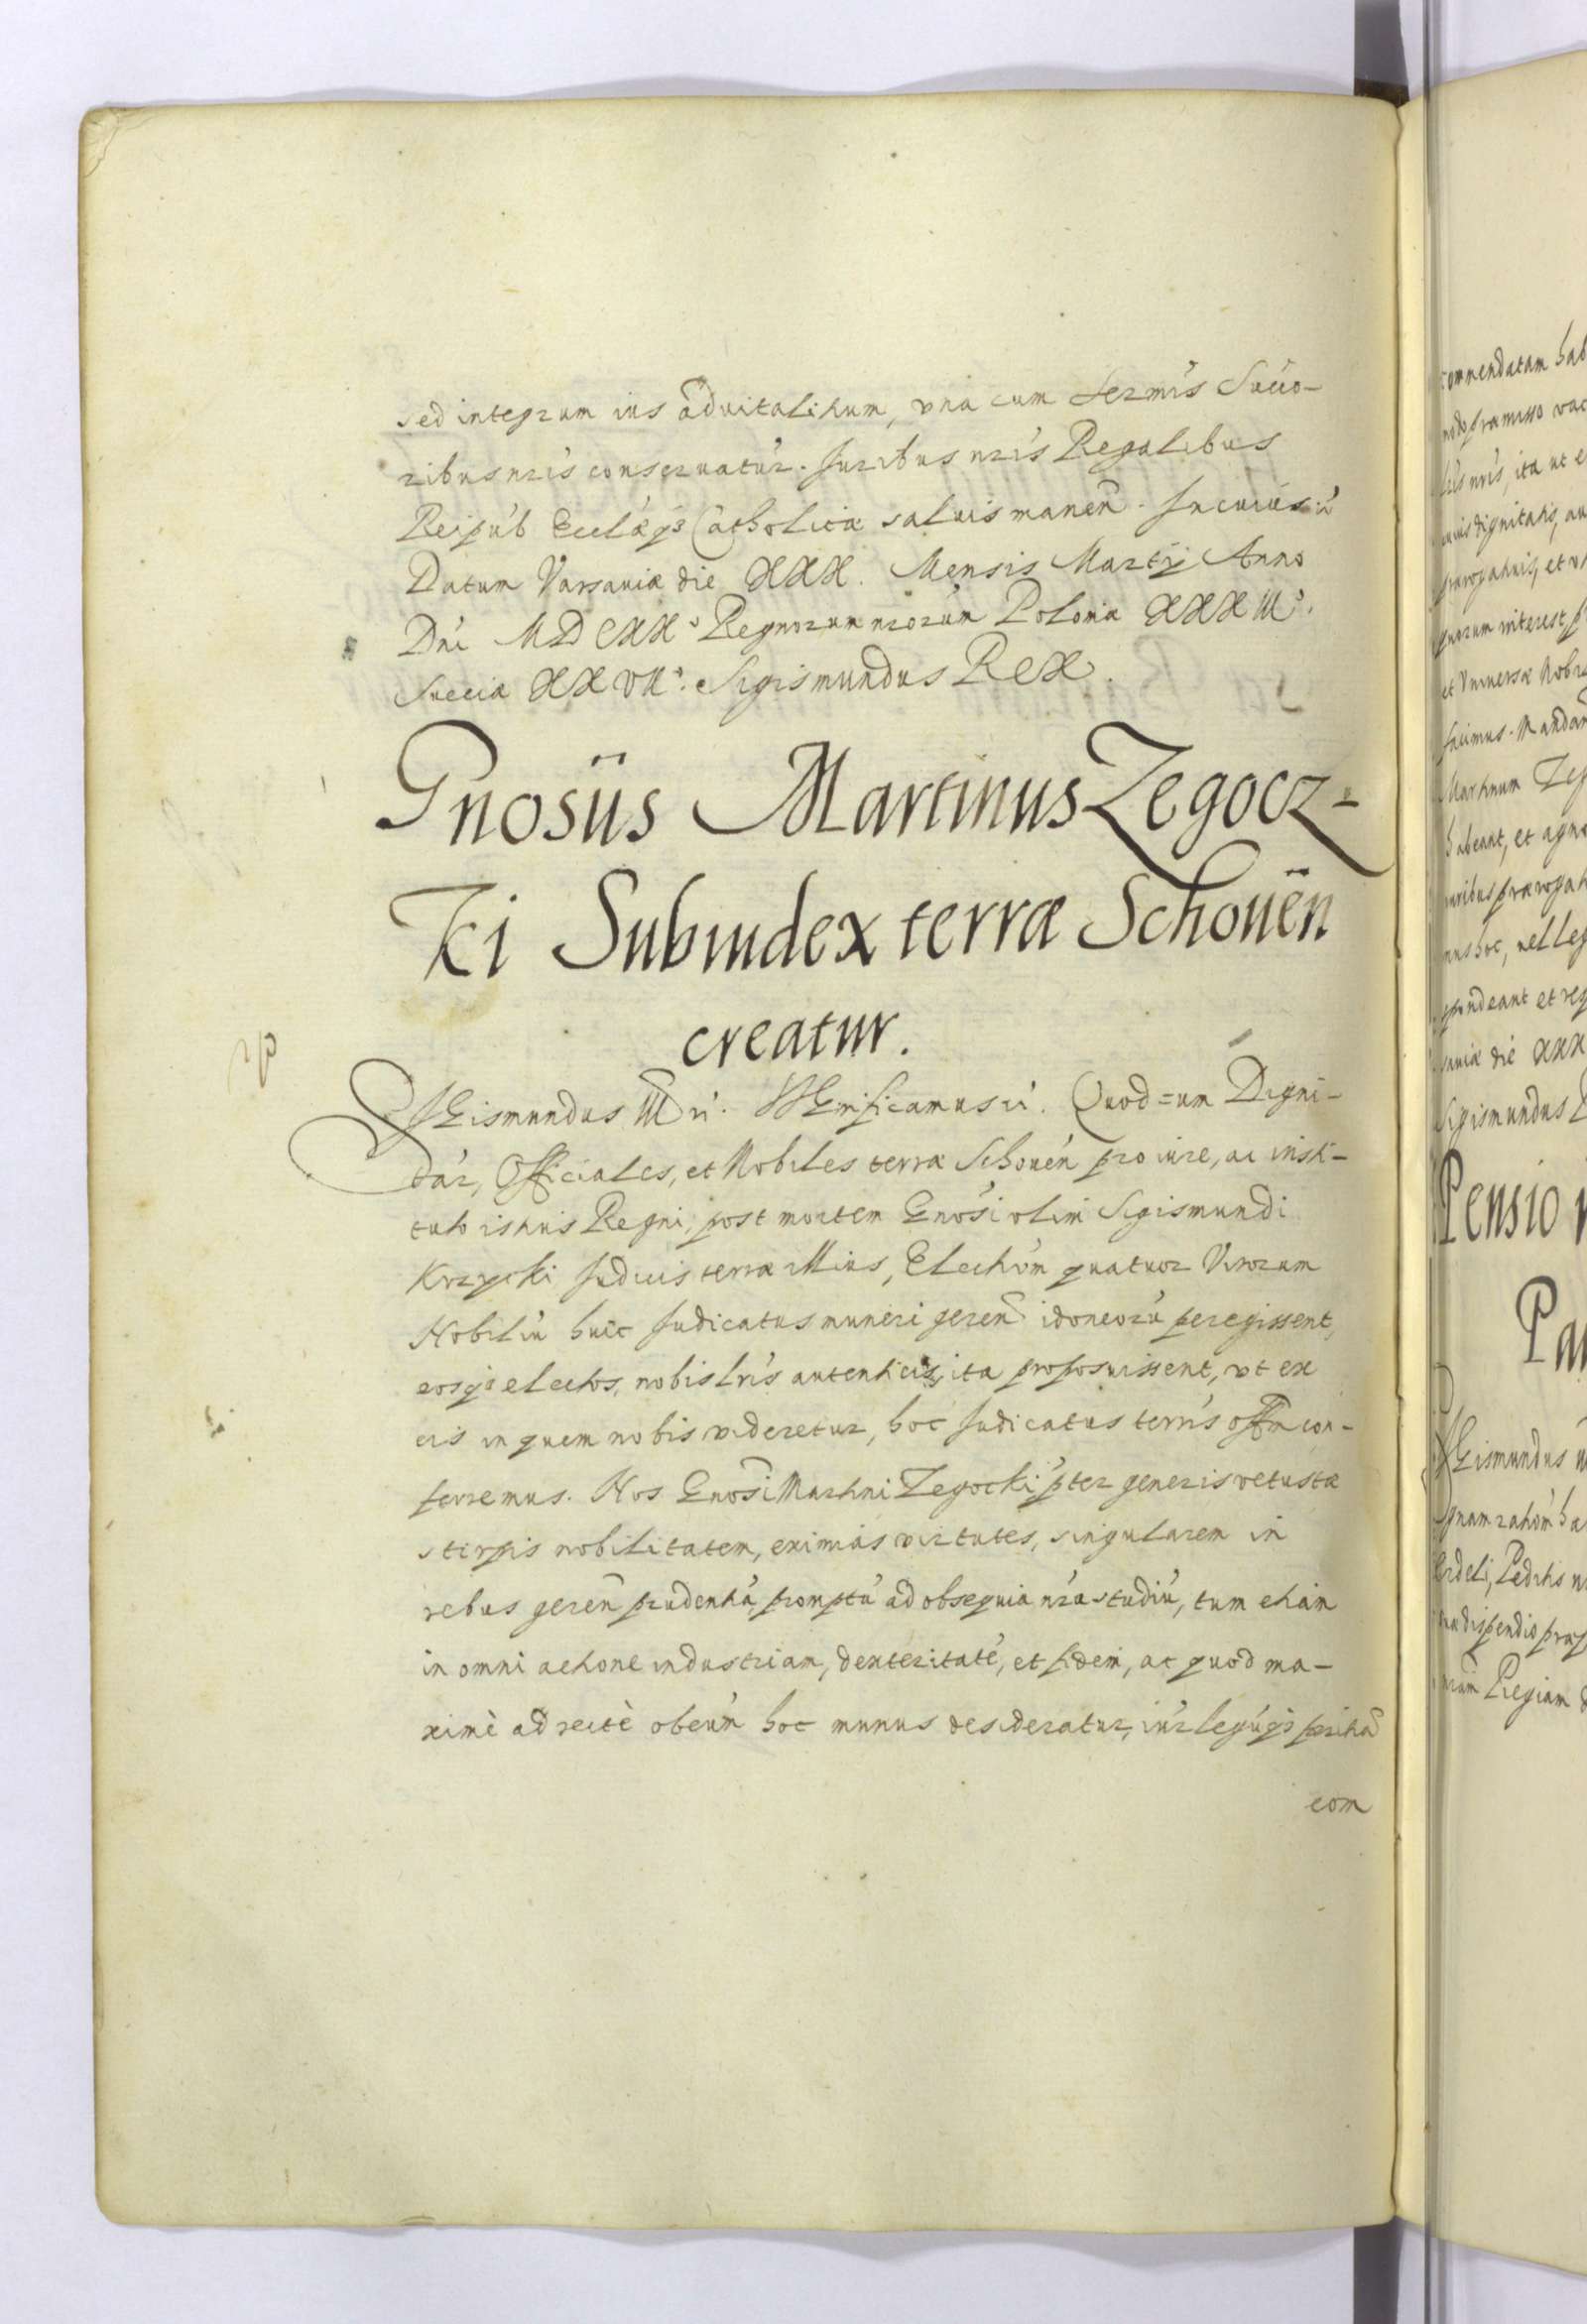 sed integrum ius aduitalitium, vna cum Sermis Succo-
ribus nris conseruatur. Juribus nris Regalibus
Reipub Ecclæq3 Catholicæ saluis manen. In cuius
Datum Varsauiæ die XXX. Mensis Martij Anno
Dni MDCXX° Regnorum nrorum Poloniæ XXXIII°.
Sueciæ XXVII°. Sigismundus REX.
Gnosus Martinus Zegocz-
ki Subiudex terræ Schouen
creatur.
SIGismundus III Significamus. Quod cum Digni-
tar, Officiales, et Nobiles terræ Schouen pro iure, ac insti-
tuto istius Regni, post mortem Gnosi olim Sigismundi
Krzycki Judicis terræ illius, Electiom quatuor Virorum
Nobiliu huic Judicatus muneri geren idoneoru peregissent,
eosq3 electos, nobis lris autenticis, ita proposuissent, vt ex
eis in quem nobis videretur, hoc Judicatus terris offm con-
ferremus. Nos Gnosi Martini Zegocki pter generis vetustæ
stirpis nobilitatem, eximias virtutes, singularem in
rebus geren prudentia, promptu ad obsequia nra studiu, tum etiam
in omni actione industriam, dexteritate, et fidem, ac quod ma-
ximè ad rectè obeun hoc munus desideratur, iur leguq3 peritia
com
commendatam hab
modo præmisso vac
lris nris, ita ut e
dignitatis, au
prærogatiuis, et v
quorum interest
et Vniuersæ Nobi
facimus. Mandan
Martinum Zeg
habeant, et agno
prærogat
hoc, uel leg
pondeant et res
sauiæ die XXX
Sigismundus
Pensio
Pa
SIGismundus
quam rationem ha
Peditis
dispendio præ
nram Regiam